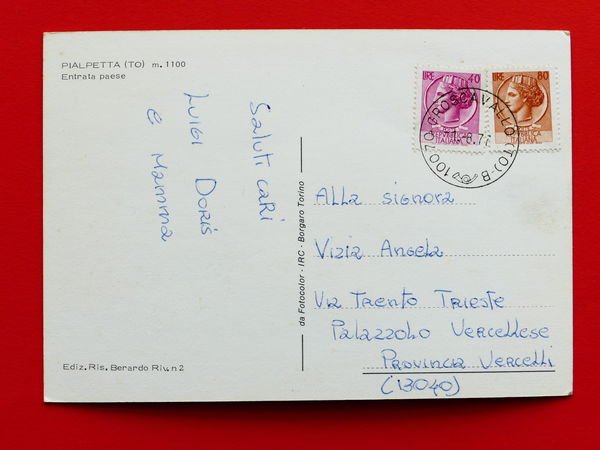 PIALPETTA (TO) m. 1100
Entrata paese
Saluti cari
Luigi Doris
e Mamma
Ediz. Ris. Berardo Riv. n2
da Fotocolor - IRC - Borgaro Torino
LIRE 40
REPUBBLICA ITALIANA
LIRE 80
REPUBBLICA ITALIANA
10070 GROSCAVALLO (TO)-B
Alla signora
Vizia Angela
Via Trento Trieste
Palazzolo Vercellese
Provincia Vercelli
(13040)